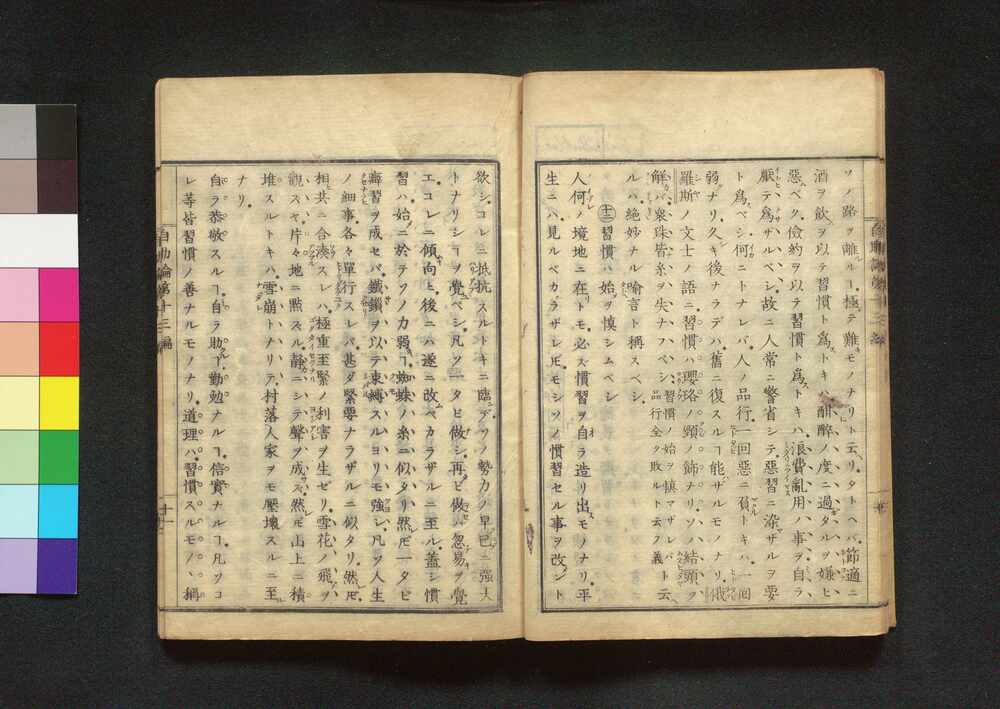 ソノ路ヲ離ルヿ極テ難モノナリト云リ。タトヘバ節適ニ
酒ヲ飲ヲ以テ習慣ト為トキハ、酣醉ノ度ニ過タルヲ嫌ヒ
惡ベク、儉約ヲ以テ習慣ト為トキハ、浪費亂用ノ事ヲ自ラ
厭テ為ザルベシ、故ニ人常ニ警省シテ、惡習ニ染ザルヲ要
ト為ベシ、何ニトナレバ、人ノ品行一回惡ニ負トキハ、一個
弱ナリ、久キ後ナラデハ舊ニ復スルヿ能ザルモノナリ、俄
羅斯ノ文士ノ語ニ、習慣ハ瓔珞ノ頸ノ飾ナリ、ソノ結頭ヲ
解バ衆珠皆糸ヲ失ナフベシ、習慣ノ始ヲ愼マザレバ品行全ク敗ルト云フ義ト云
ルハ絶妙ナル喩言ト稱スベシ
十二 習慣ハ始ヲ愼シムベシ
人何ノ境地ニ在トモ、必ス習慣ヲ自ラ造リ出モノナリ、平
生ニハ見ルベカラザレ𪜈、モシソノ慣習セル事ヲ改ント
欲シ、コレニ抵抗スルトキニ臨デ、ソノ勢力ノ早已ニ強大
トナリシヿヲ覺ベシ、凡ソ一タビ做シ、再ビ做バ、忽易ヲ覺
エ、コレニ傾向ヒ、後ニハ遂ニ改ベカラザルニ至ル、蓋シ慣
習ハ始ニ於テソノ力弱ヿ蜘蛛ノ糸ニ似タリ、然𪜈一タビ
癖習ヲ成セバ、鐵鎖ヲ以テ束縛スルヨリモ強シ、凡ソ人生
ノ細事、各々單行スレバ、甚ダ緊要ナラザルニ似タリ、然𪜈
相共ニ合湊スレハ、極重至緊ノ利害ヲ生ゼリ、雪花ノ飛ヲ
觀ズヤ、片々地ニ點スル、靜ニシテ聲ヲ成ズ、然𪜈山上ニ積
堆スルトキハ、雪崩トナリテ、村落人家ヲモ壓壞スルニ至
ナリ
自ラ恭敬スルヿ、自ラ助ルヿ、勤勉ナルヿ、信實ナルヿ、凡ソコ
レ等皆習慣ノ善ナルモノナリ、道理ハ習慣スルモノハ、稱
自助論第十三編
十一